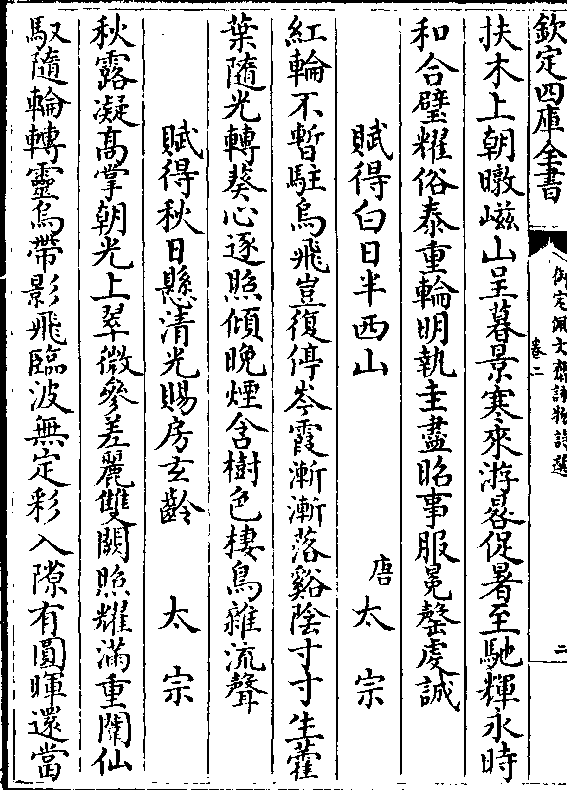 欽定四庫全書
御定佩文齋詠物詩選
卷二
二
扶木上朝暾嵫山呈暮景寒來游晷促暑至馳輝永時
和合璧耀俗泰重輪明執圭盡昭事服冕罄虔誠
賦得白日半西山
唐太宗
紅輪不暫駐烏飛豈復停岑霞漸漸落谿陰寸寸生藿
葉隨光轉葵心逐照傾晚煙含樹色棲鳥雜流聲
賦得秋日懸清光賜房玄齡
太宗
秋露凝高掌朝光上翠微參差麗雙闕照耀滿重闈仙
馭隨輪轉靈烏帶影飛臨波無定彩入隙有圓暉還當